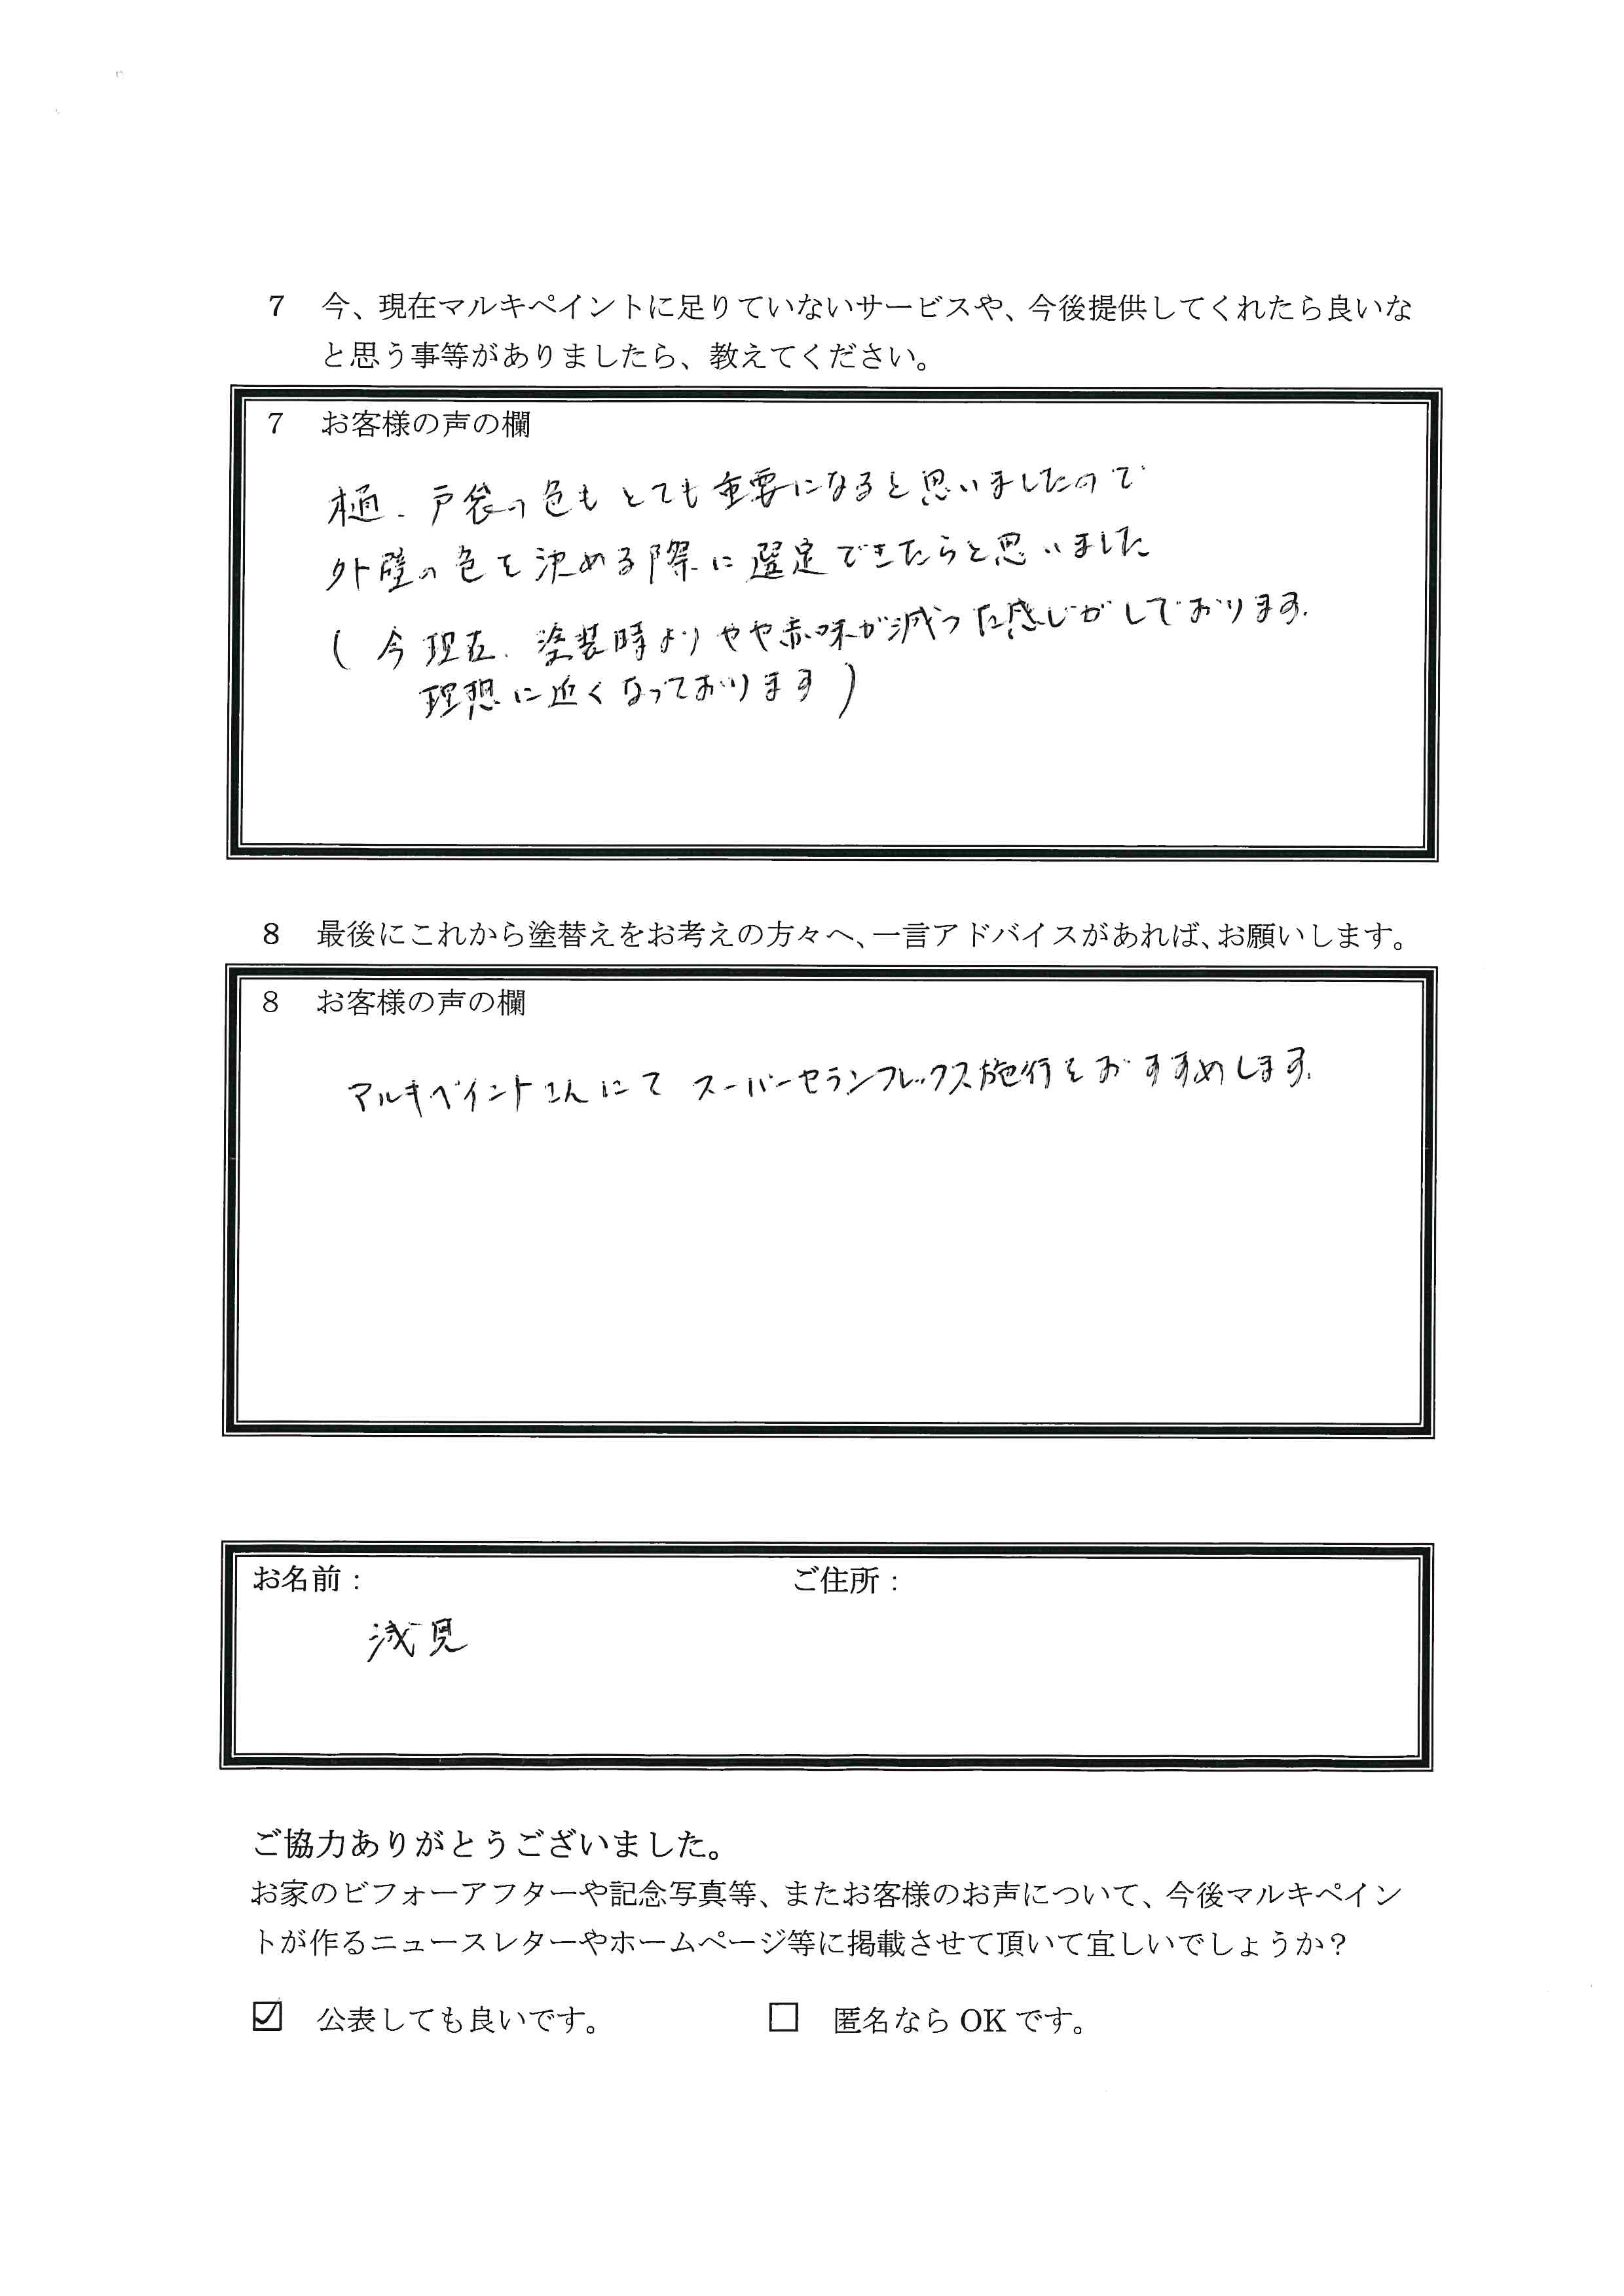 7 今、現在マルキペイントに足りていないサービスや、今後提供してくれたら良いな
と思う事等がありましたら、教えてください。
7 お客様の声の欄
樋、戸袋の色もとても重要になると思いましたので
外壁の色を決める際に選定できたらと思いました
(今現在、塗装時よりやや赤味が減った感じがしております。
理想に近くなっております)
8 最後にこれから塗替えをお考えの方々へ、一言アドバイスがあれば、お願いします。
8 お客様の声の欄
マルキペイントさんにて スーパーセランフレックス施行をおすすめします。
お名前： ご住所：
浅見
ご協力ありがとうございました。
お家のビフォーアフターや記念写真等、またお客様のお声について、今後マルキペイン
トが作るニュースレターやホームページ等に掲載させて頂いて宜しいでしょうか？
☑ 公表しても良いです。 □ 匿名なら OK です。